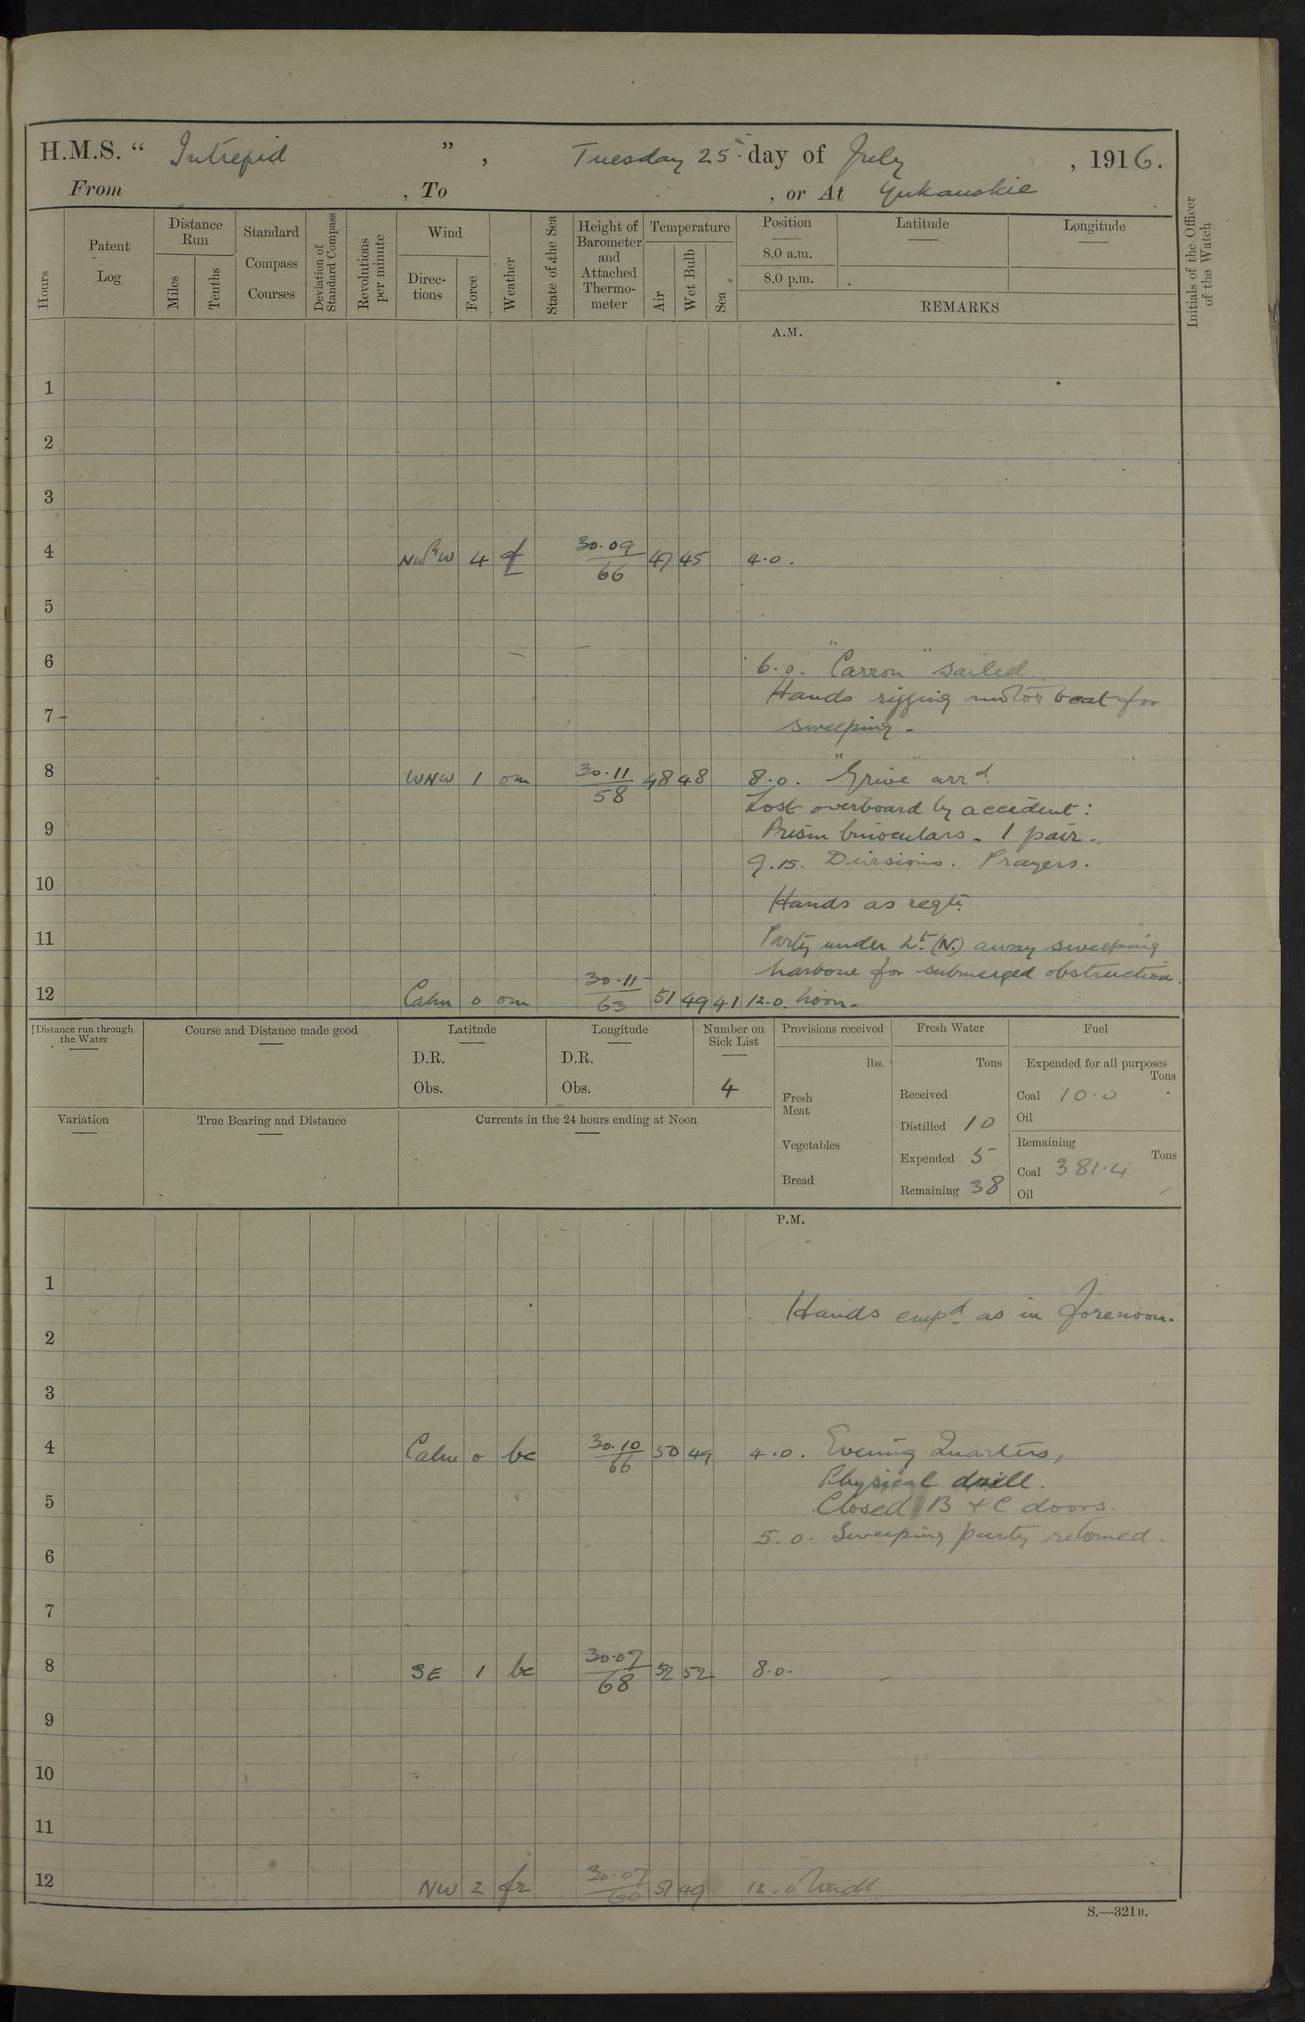 H.M.S. “ Intrepid ” , Tuesday 25th day of July , 1916.
From , To , or At Yukanskie
Hours
Patent Log
Distance Run
Miles
Tenths
Standard Compass Courses
Deviation of Standard Compass
Revolutions per minute
Wind
Direc-tions
Force
Weather
State of the Sea
Height of Barometer and Attached Thermo-meter
Temperature
Air
Wet Bulb
Sea
Position
8.0 a.m.
8.0 p.m.
Latitude
Longitude
REMARKS
Initials of the Officer of the Watch
A.M.
1
2
3
4 NWBW 4 30.09 66 47 45 4.0.
5
6 6.0. "Carron" sailed
Hands rigging motor boat for
7 sweeping -
8 WNW 1 om 30.11 58 48 48 8.0. "Grive" arrd.
Lost overboard by accident :
9 Prism binoculars - 1 pair.
9.15. Divisions. Prayers.
10 Hands as reqte.
11 Party under Lt. (N.) away sweeping
harbour for submerged obstruction.
12 Calm 0 om 30.11 63 51 49 41 12.0. Noon.
Distance run through the Water
Course and Distance made good
Latitude
D.R.
Obs.
Longitude
D.R.
Obs.
Number on Sick List
4
Provisions received
lbs.
Fresh Meat
Vegetables
Bread
Fresh Water
Tons
Received
Distilled 10
Expended 5
Remaining 38
Fuel
Expended for all purposes
Tons
Coal 10.0
Oil
Remaining
Tons
Coal 381.4
Oil
Variation
True Bearing and Distance
Currents in the 24 hours ending at Noon
P.M.
1
Hands empd. as in forenoon.
2
3
4 Calm 0 bc 30.10 66 50 49 4.0. Evening Quarters,
Physical drill.
5 Closed B + C doors.
5.0. Sweeping party returned.
6
7
8 SE 1 bc 30.07 68 52 52 8.0.
9
10
11
12 NW 2 30.07 51 49 12.0 Midt
S.—321B.